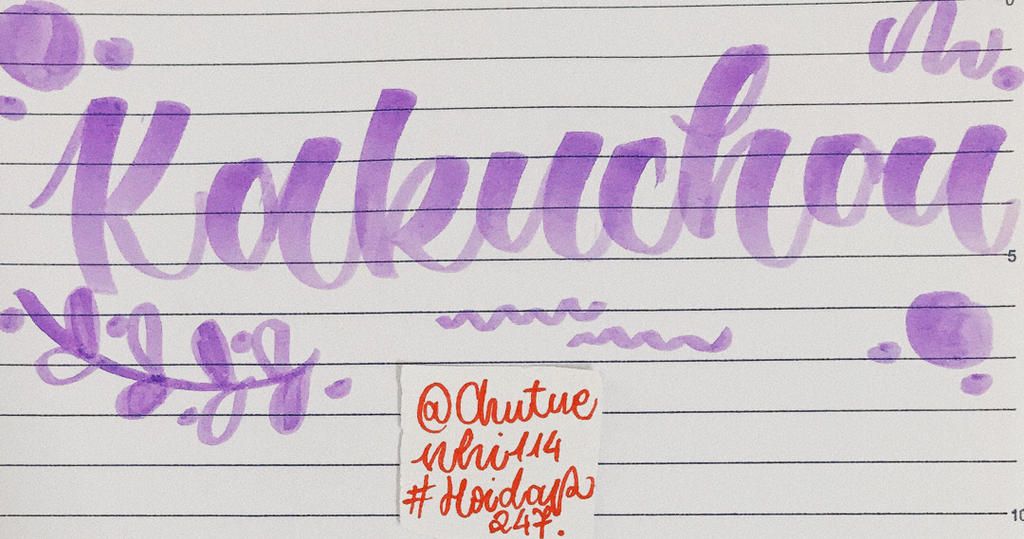 Kakuchou
@Chutue
nhi114
#Hoidap
247.